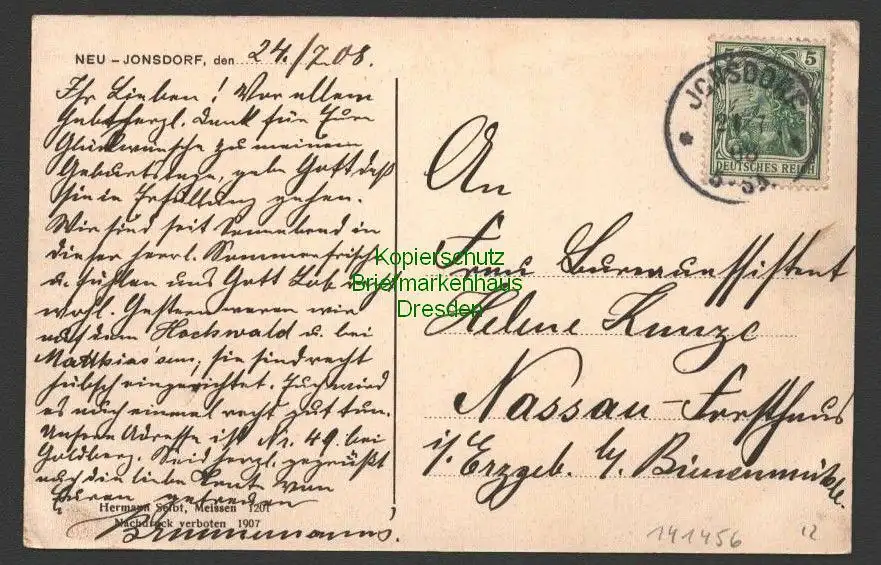 NEU – JONSDORF, den 24./7.08.
Ihr Lieben! Vor allem
herzl. Dank für Eure
Glückwünsche zu meinem
Geburtstage, gebe Gott daß
sie in Erfüllung gehen.
Wir sind seit Sonnabend in
dieser herrl. Sommerfrische
u. fühlen uns Gott Lob recht
wohl. Gestern waren wir
auf dem Hochwald u. bei
Matthias am, sie sind recht
hübsch eingerichtet. Euch wird
es auch einmal recht gut tun.
Unsere Adresse ist Nr. 49. bei
Goldberg. Seid herzl. gegrüßt
auch die liebe von
Euren getreuen
Hermann Seibt, Meissen 1201
Nachdruck verboten 1907
Brunnemanns.
5 5
DEUTSCHES REICH
JONSDORF
24.7
08
An
Frau Bureauassistent
Helene Kunze
Nassau-Forsthaus
i/. Erzgeb. b/. Bienenmühle.
Kopierschutz
Briefmarkenhaus
Dresden
141456
12